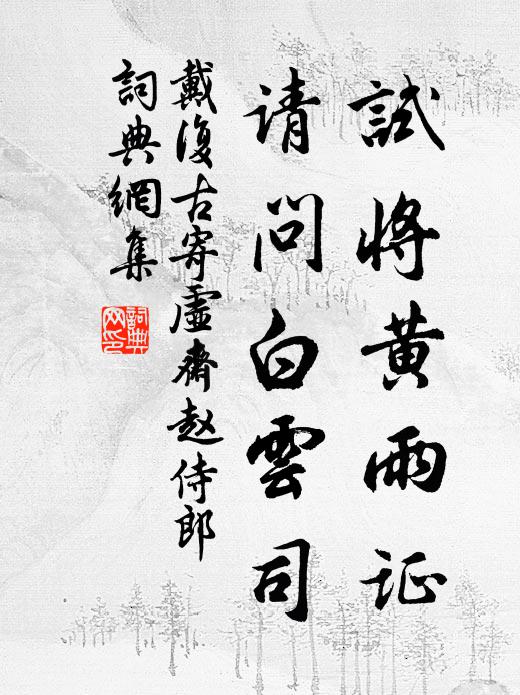 試將黄雨证
请问白雲司
戴復古寄虛齋赵侍郎
詞典網集
詞典网印